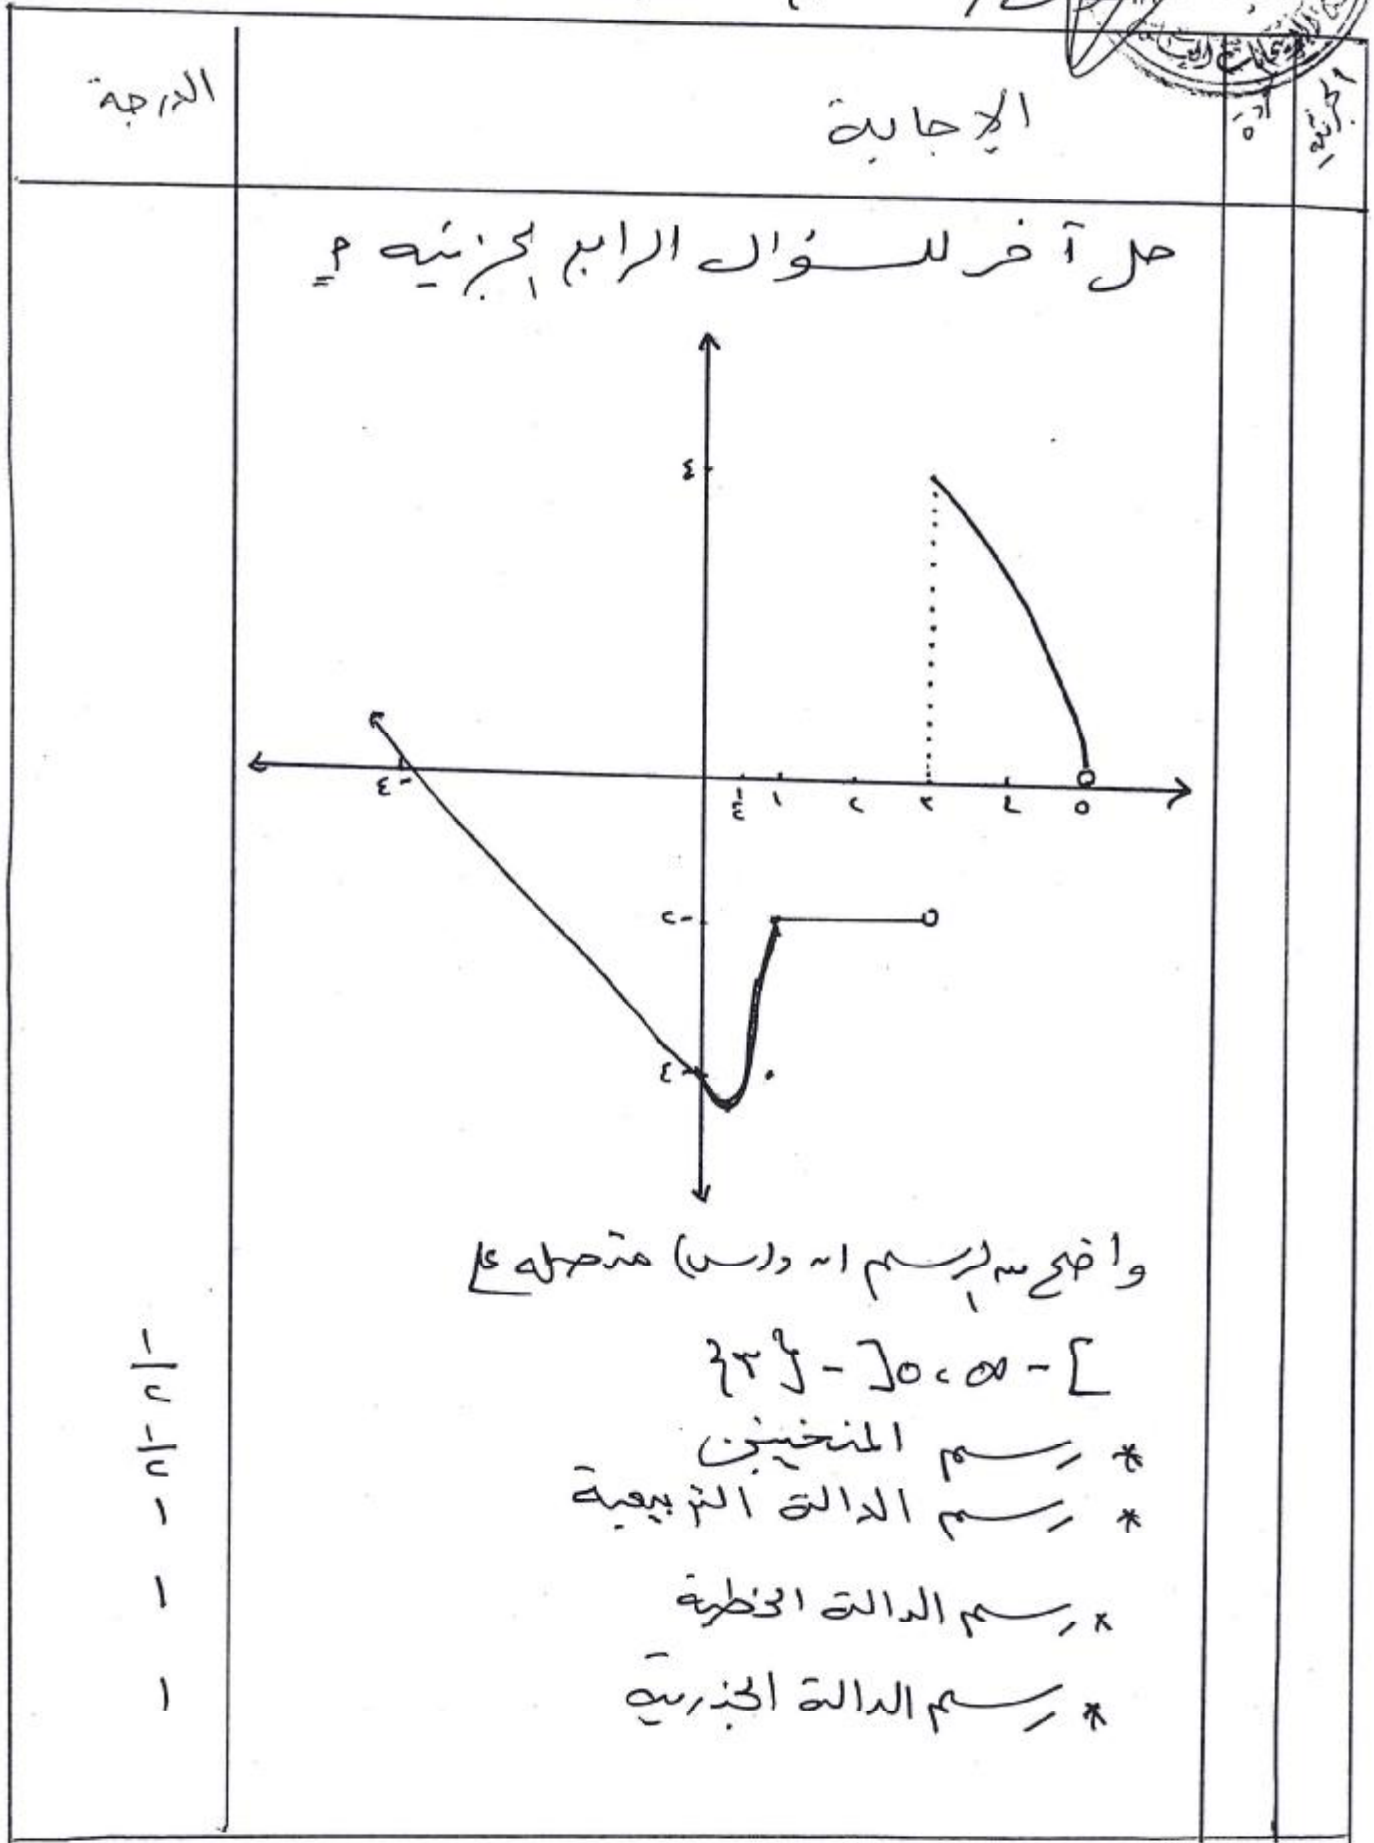 الجزئية
الإجابة
الدرجة
حل آخر للسؤال الرابع الجزئيه م
٤
-٤
١ ٢ ٣ ٤ ٥
-٢
-٤
واضح من الرسم ان د(س) متصله على
]-∞، ٥[ - {٣}
١/٢
* رسم المنحنيين
١/٢
* رسم الدالة التربيعية
١
* رسم الدالة الخطية
١
* رسم الدالة الجذرية
١